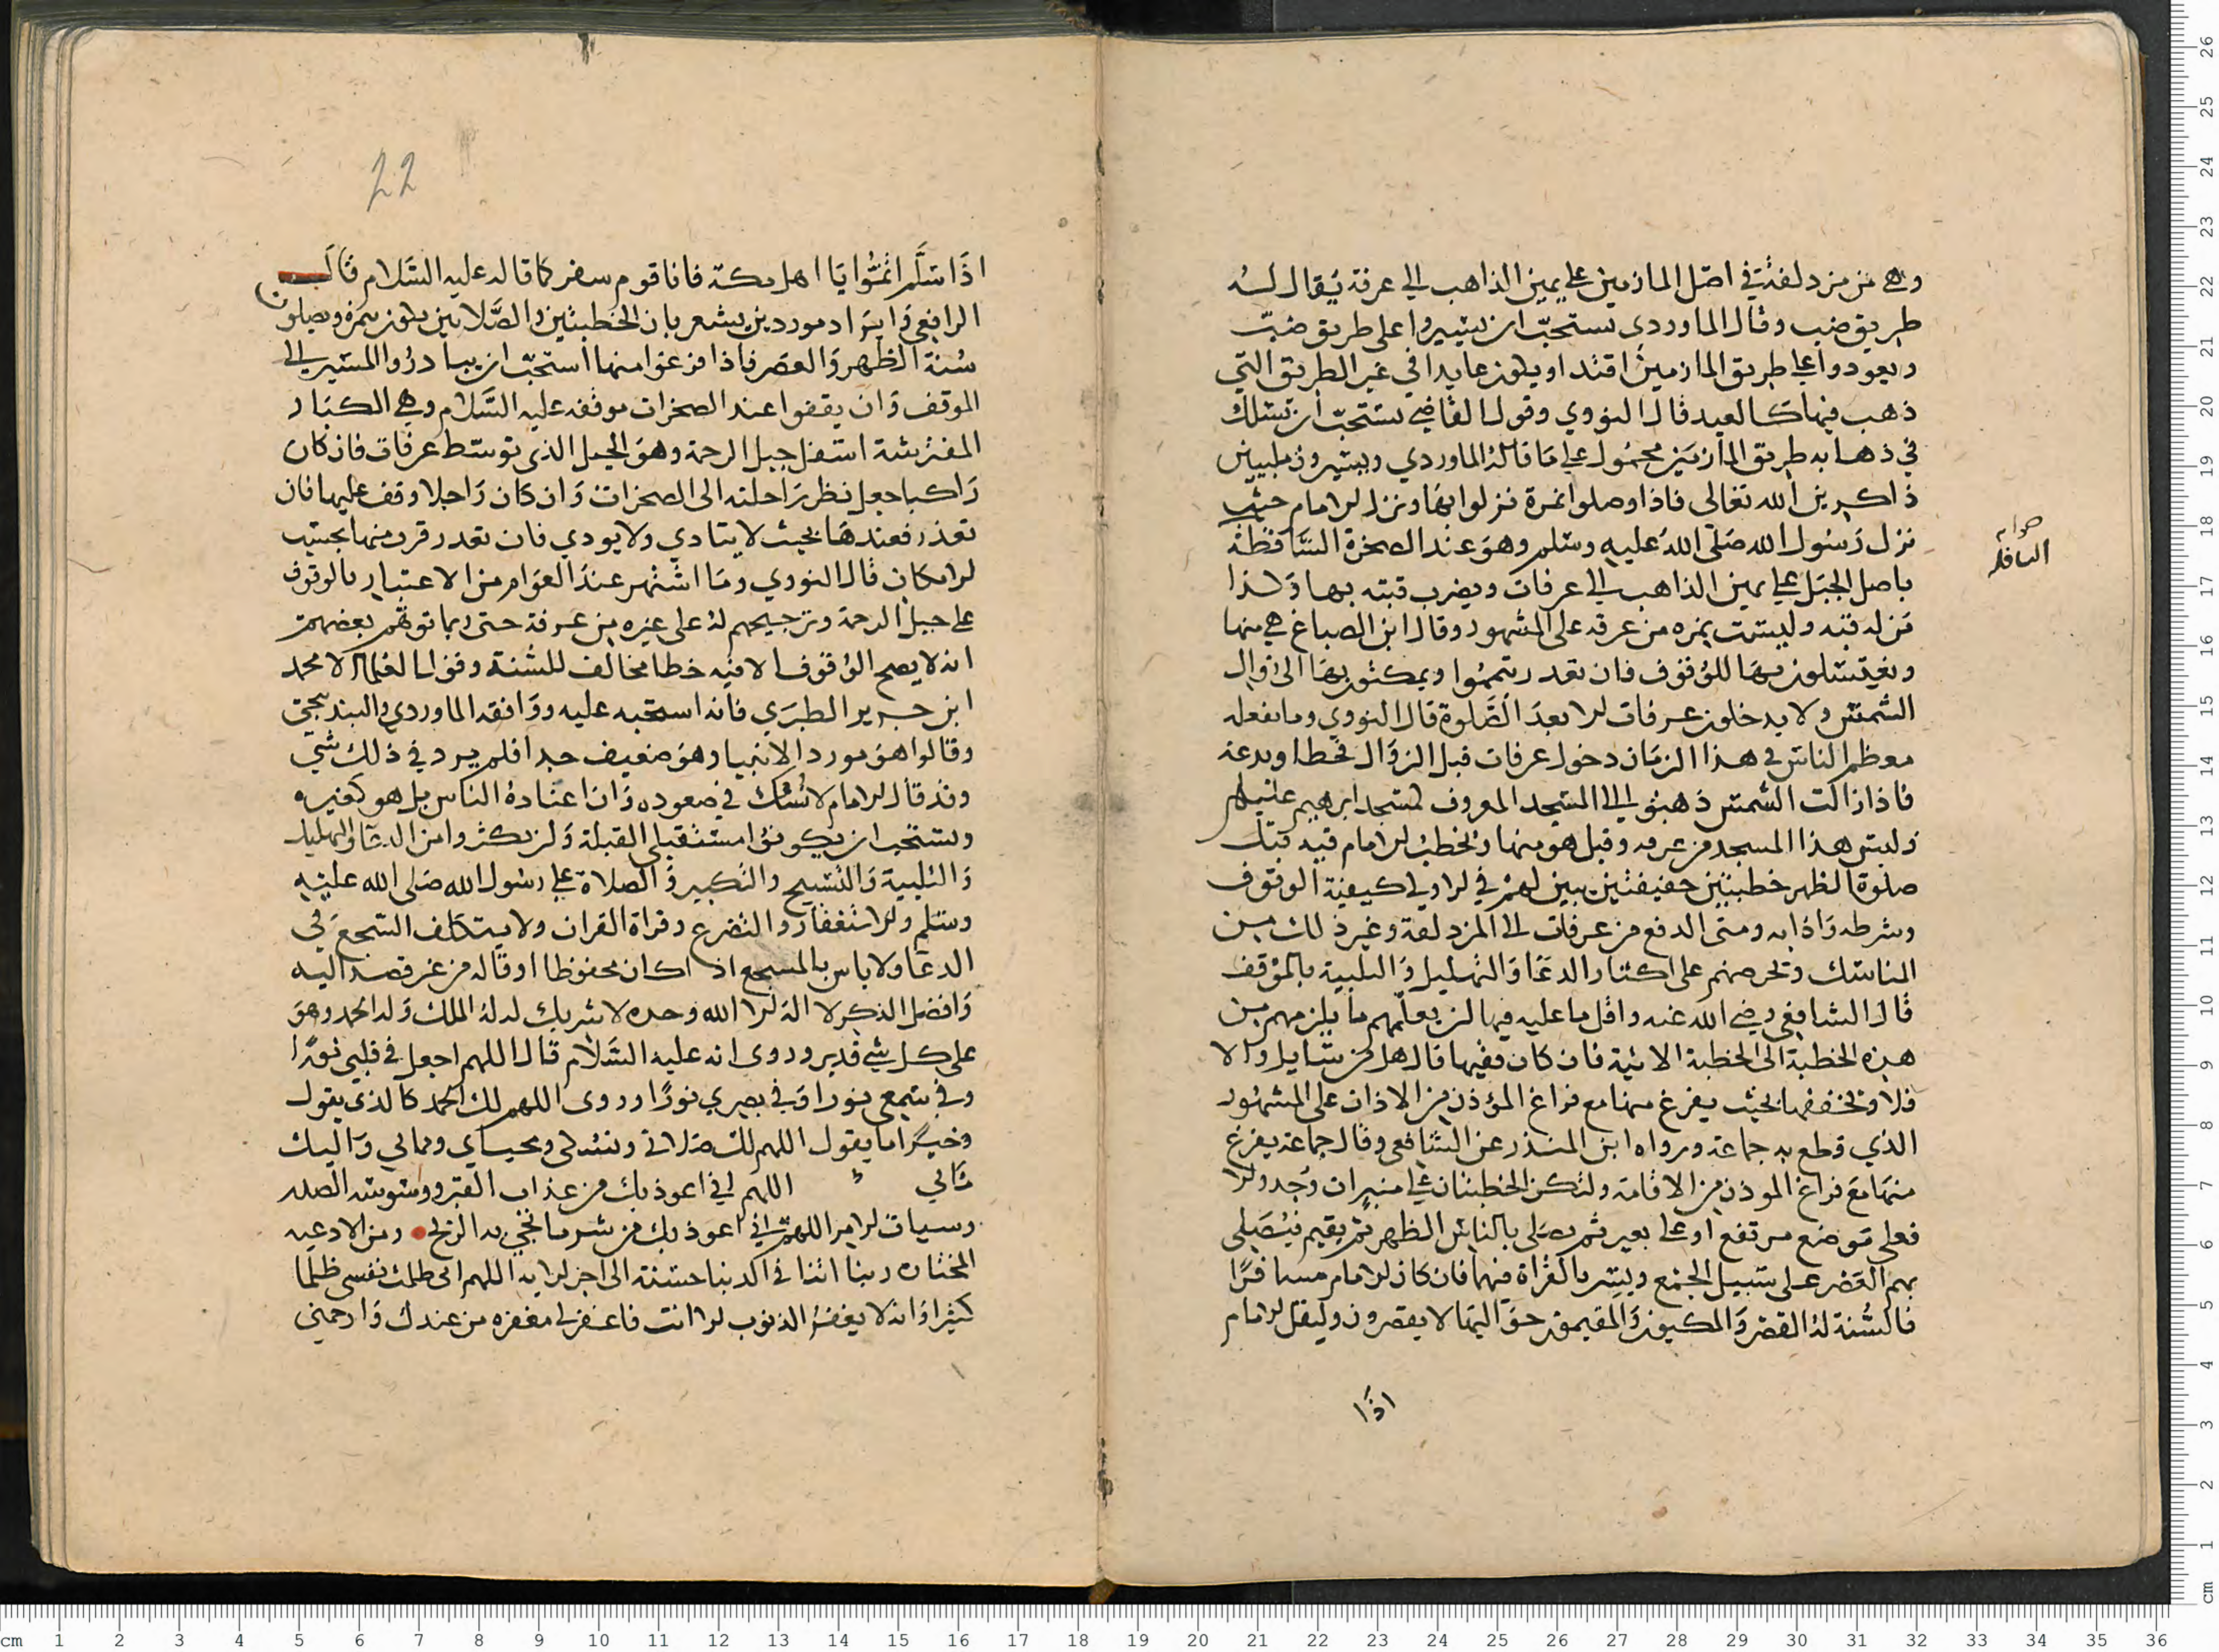 وهي من مزدلفة في اصل المازمين على يمين الذاهب الى عرفة يقال له
طريق ضب وقال الماوردي يستحب ان يسيروا على طريق ضب
ويعودوا على طريق المازمين اقتدا ويكون عايدا في غير الطريق التي
ذهب فيها كالعيد قال النووي وقول القاضي يستحب ان تسلك
في ذهابه طريق المازمين محمول على ما قاله الماوردي ويسيرون ملبيين
ذاكرين الله تعالى فاذا وصلوا نمرة نزلوا بها ونزل الامام حيث
نزل رسول الله صلى الله عليه وسلم وهو عند الصخرة الساقطة
صوابه
النافله
باصل الجبل على يمين الذاهب الى عرفات ويضرب قبته بها ولذا
من له قبه وليست بنمره من عرفه على المشهور وقال ابن الصباغ هي منها
ويغتسلون بها للوقوف فان تعدر تيمموا ويمكثون بها الى زوال
الشمس ولا يدخلون عرفات الا بعد الصلوة قال النووي وما يفعله
معظم الناس في هذا الزمان دخول عرفات قبل الزوال فخطا وبدعة
فاذا زالت الشمس ذهبوا الى المسجد المعروف لمسجد ابرهيم عليلم
وليس هذا المسجد من عرفه وقبل هو منها ويخطب الامام فيه قبل
صلوة الظهر خطبتين خفيفتين يبين لهم في الاولي كيفية الوقوف
وشرطه واذابه ومتى الدفع من عرفات الى المزدلفة وغير ذلك من
المناسك ويحرصهم على اكثار الدعا والتهليل والتلبية بالموقف
قال الشافعي رضي الله عنه واقل ما عليه فيها ان يعلمهم ما يلزمهم من
هذه الخطبة الى الخطبة الاتية فان كان فقيها قال هل من سايل والا
فلا ويخففها بحيث يفرغ منها مع فراغ المؤذن من الاذان على المشهور
الذي قطع به جماعة ورواه ابن المنذر عن الشافعي وقال جماعة يفرغ
منها مع فراغ الموذن من الاقامة ولتكن الخطبتان على منبر ان وجد والا
فعلى موضع مرتفع او على بعير ثم يصلي بالناس الظهر ثم يقيم فيصلي
بهم العصر على سبيل الجمع ويسر بالقراة فيها فان كان الامام مسافرا
فالسنة له القصر والمكيون والمقيمون حواليها لا يقصرون وليقل الامام
اذا
22
اذا سلم اتموا يا اهل مكة فانا قوم سفر كما قاله عليه السلام قال
الرافعي وايراد موردين يشعر بان الخطبتين والصلاتين يكون بنمرة ويصلون
سنة الظهر والعصر فاذا فرغوا منها استحب ان يبادروا المسير الى
الموقف وان يقفوا عند الصخرات موقفه عليه السلام وهي الكبار
المفترشة اسفل جبل الرحمة وهو الجبل الذي توسط عرفات فان كان
راكبا جعل نظر راحلته الى الصخرات وان كان راجلا وقف عليها فان
تعذر فعندها بحيث لا يتادي ولا يودي فان تعدر قرب منها بحسب
الامكان قال النووي وما اشتهر عند العوام من الاعتبار بالوقوف
على جبل الرحمة وترجيحهم له على غيره من عرفة حتى ربما توهم بعضهم
انه لا يصح الوقوف الا فيه خطا مخالف للسنة وقول العلما الا محمد
ابن جرير الطبري فانه استحبه عليه ووافقه الماوردي والبندنيجي
وقالوا هو مورد الانبيا وهو ضعيف جدا فلم يرد في ذلك شي
وقد قال الامام لا نسك في صعوده وان اعتاده الناس بل هو كغيره
ويستحب ان يكونوا مستقبلي القبلة وان يكثروا من الدعا والتهليل
والتلبية والتسبيح والتكبير والصلاة على رسول الله صلى الله عليه
وسلم والاستغفار والتضرع وقراة القران ولا يتكلف السجع في
الدعا ولا باس بالمسجع اذا كان محفوظا او قاله من غير قصد اليه
وافضل الذكر لا اله الا الله وحده لا شريك له له الملك وله الحمد وهو
على كل شي قدير وروى انه عليه السلام قال اللهم اجعل في قلبي نورا
وفي سمعي نورا وفي بصري نورا وروى اللهم لك الحمد كالذي يقول
وخيرا مما يقول اللهم لك صلاتي ونسكي ومحياي ومماتي واليك
مالي اللهم اني اعوذ بك من عذاب القبر ووسوسه الصدر
وسيات الامر اللهم اني اعوذ بك من شر ما تجي به الريح ومن الادعيه
المختاره ربنا اتنا في الدنيا حسنة الى اخر الايه اللهم اني ظلمت نفسي ظلما
كثيرا وانه لا يغفر الذنوب الا انت فاغفر لي مغفره من عندك وارحمني